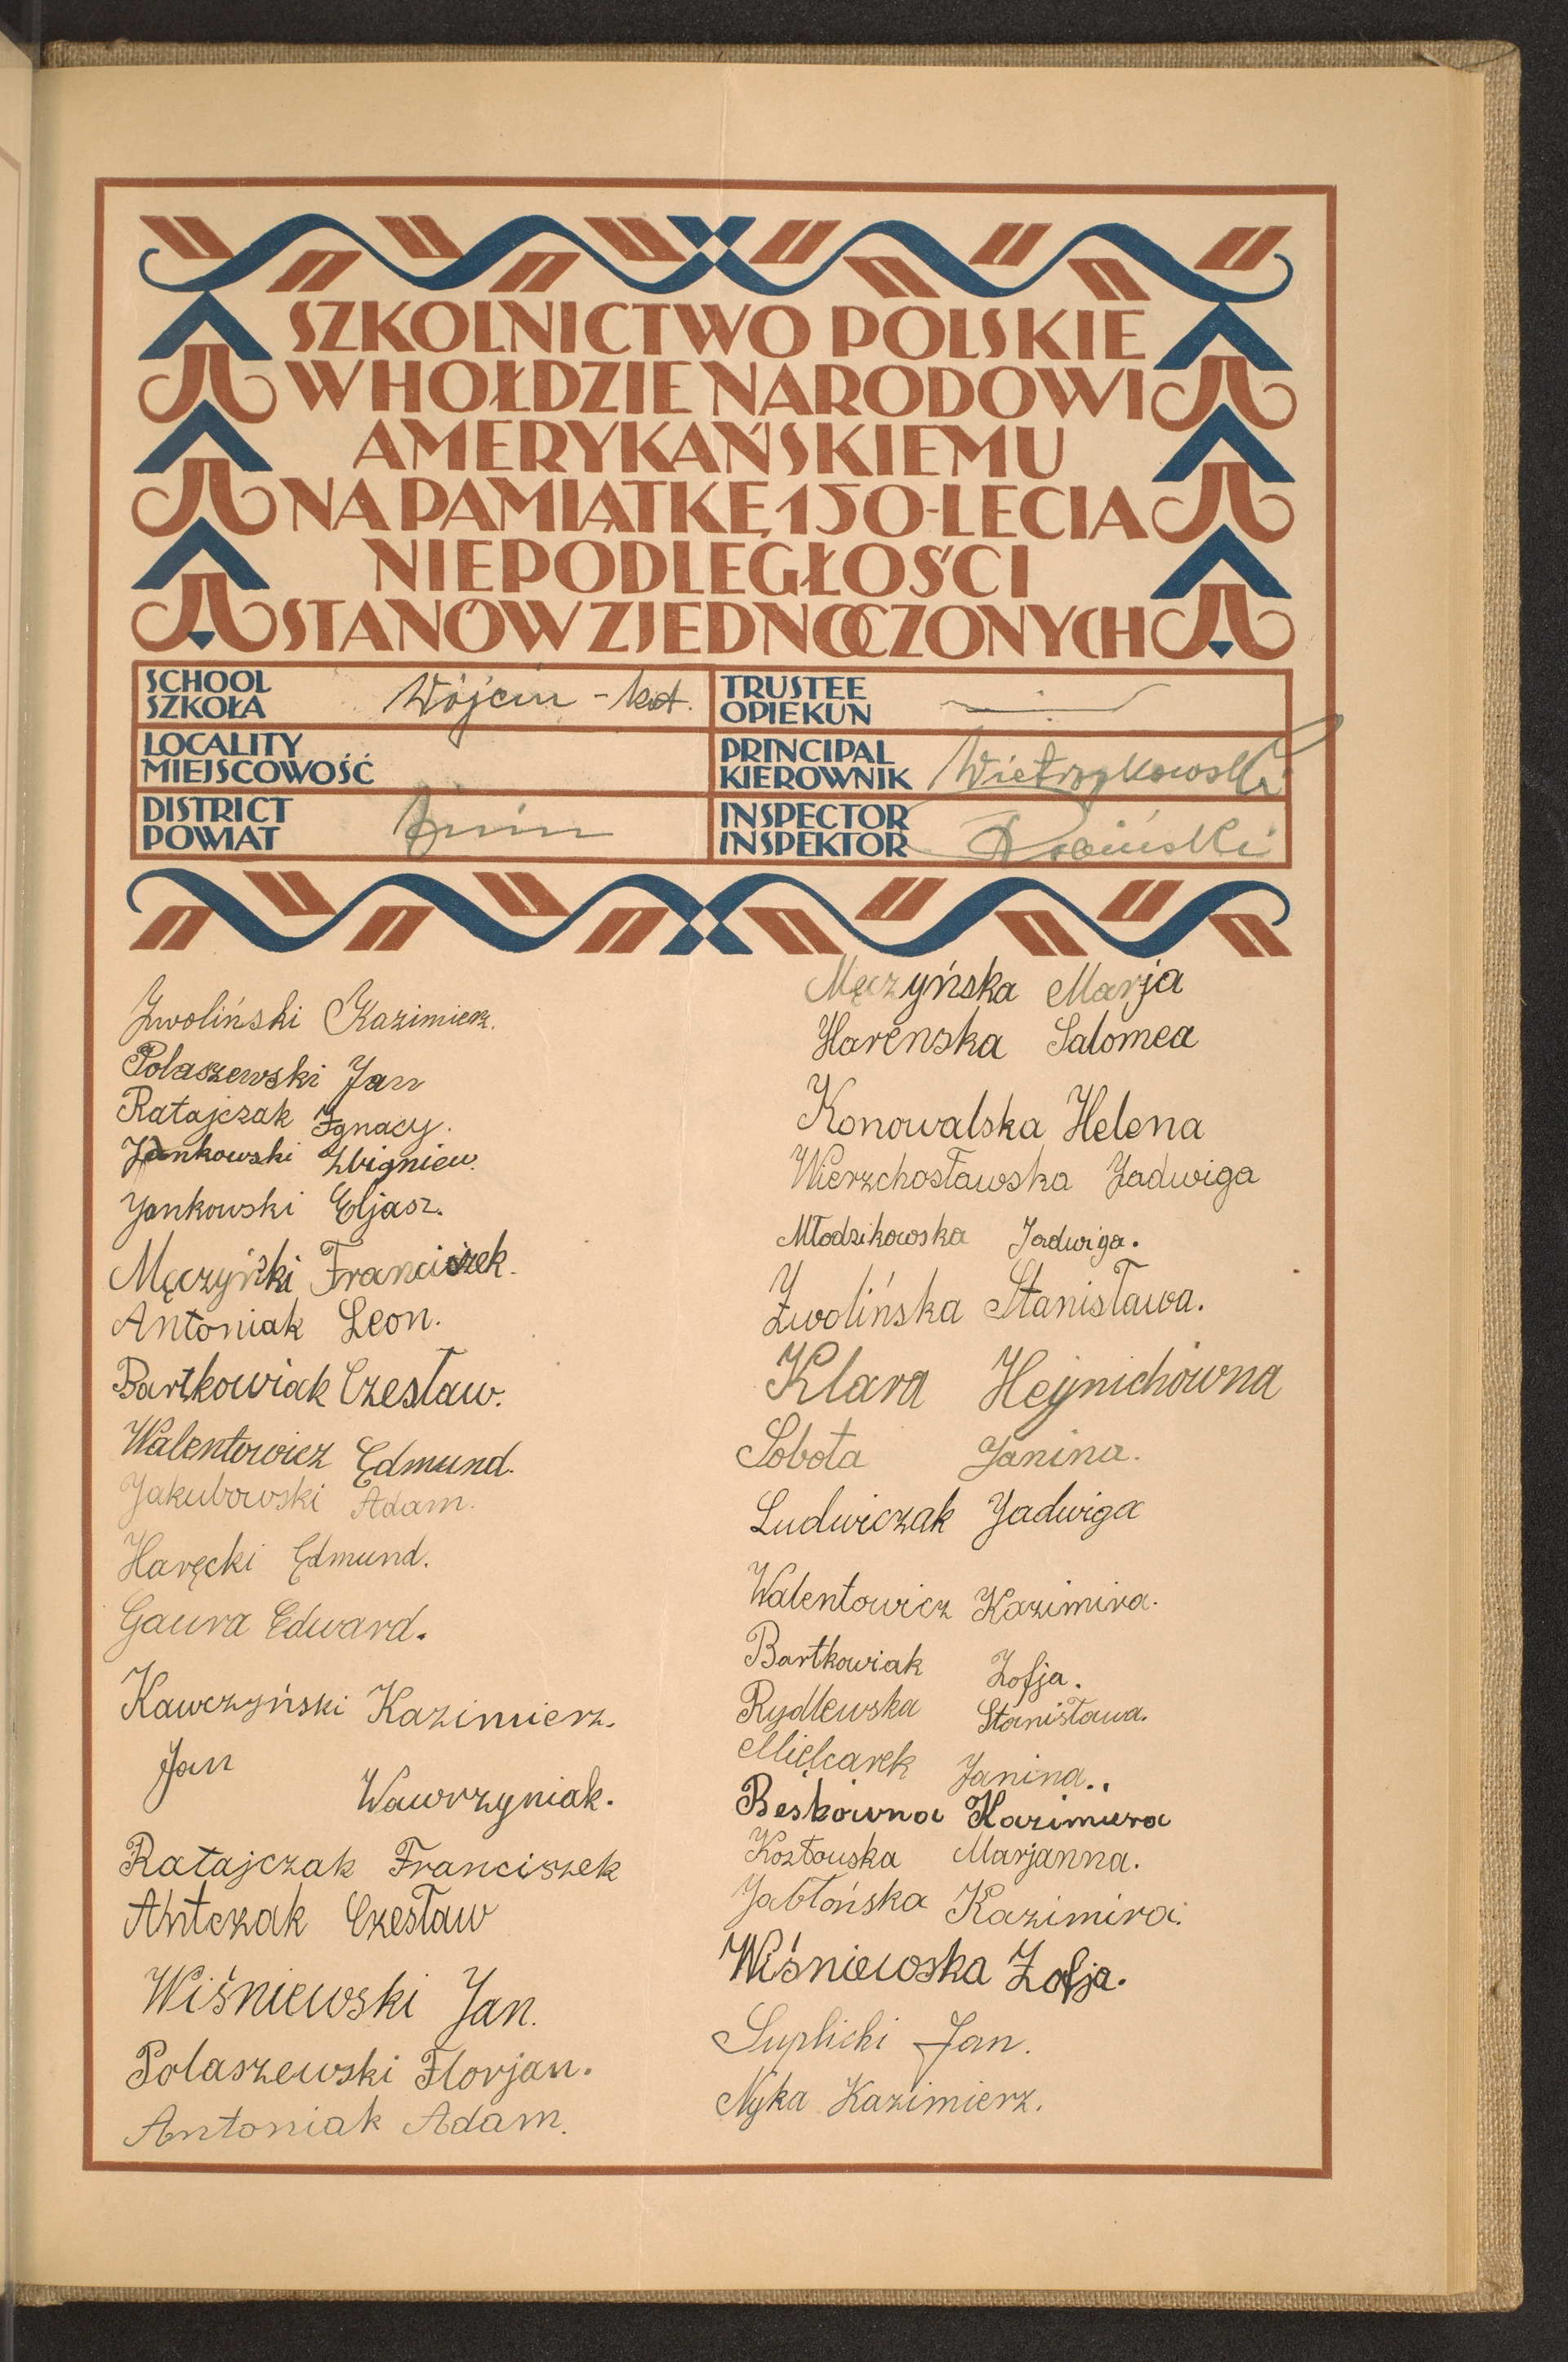 SZKOLNICTWO POLSKIE
W HOŁDZIE NARODOWI
AMERYKAŃSKIEMU
NA PAMIĄTKĘ 150-LECIA
NIEPODLEGŁOŚCI
STANÓW ZJEDNOCZONYCH
SCHOOL
SZKOŁA
Wójcin - kat.
TRUSTEE
OPIEKUN
LOCALITY
MIEJSCOWOŚĆ
PRINCIPAL
KIEROWNIK
Wietrzykowski
DISTRICT
POWIAT
Żnin
INSPECTOR
INSPEKTOR
Zwoliński Kazimierz.
Polaszewski Jan
Ratajczak Ignacy.
Jankowski Zbigniew.
Jankowski Eljasz.
Męczyński Franciszek.
Antoniak Leon.
Bartkowiak Czesław.
Walentowicz Edmund.
Jakubowski Adam.
Haręcki Edmund.
Gaura Edward.
Kawczyński Kazimierz.
Jan Wawrzyniak.
Ratajczak Franciszek
Antczak Czesław
Wiśniewski Jan.
Polaszewski Florjan.
Antoniak Adam.
Męczyńska Marja
Harenska Salomea
Konowalska Helena
Wierzchosławska Jadwiga
Młodzikowska Jadwiga.
Zwolińska Stanisława.
Klara Hejnichówna
Sobota Janina.
Ludwiczak Jadwiga
Walentowicz Kazimira.
Bartkowiak Zofja.
Rydlewska Stanisława.
Mielcarek Janina..
Beskówna Kazimiera
Kozłouska Marjanna.
Jabłońska Kazimira.
Wiśniewska Zofja.
Suplicki Jan.
Nyka Kazimierz.